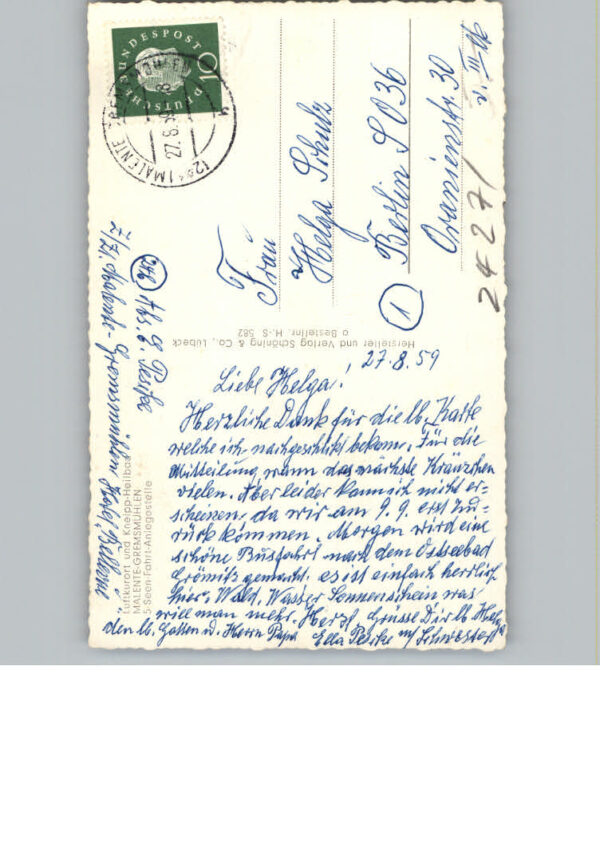 DEUTSCHE BUNDESPOST
10
MALENTE-GREMSMÜHLEN
27.8.59
Frau
Helga Schulz
Berlin SO 36
Oranienstr. 30
v. III.
1
24271
Hersteller und Verlag Schöning & Co., Lübeck
o Bestellnr. H.-S. 582
Luftkurort und Kneipp-Heilbad
MALENTE-GREMSMÜHLEN
5-Seen-Fahrt-Anlegestelle
24b Abs. E. Peseke
z/Zt. Malente-Gremsmühlen Hotel „Bellevue"
27.8.59
Liebe Helga!
Herzliche Dank für die lb. Karte
welche ich nachgeschickt bekam. Für die
Mitteilung wann das nächste Kränzchen
vielen. Aber leider kann ich nicht er-
scheinen, da wir am 9.9. erst zu-
rück kommen. Morgen wird eine
schöne Busfahrt nach dem Ostseebad
Grömitz gemacht. es ist einfach herrlich
hier. Wald, Wasser Sonnenschein was
will man mehr. Herzl. Grüsse Dir lb. Helga
den lb. Gatten u. Herrn Papa Ella u/ Schwester